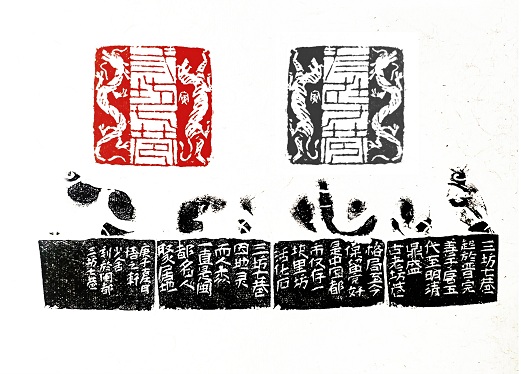 三坊七巷
起於晋完
善于唐五
代至明清
鼎盛
古老坊巷
格局至今
保留完好
是中国都
市仅存一
块里坊
活化石
三坊七巷
因地灵
而人杰
一直是闽
都名人
聚居地
庚子夏月
悟之轩
刻於闽都
三坊七巷